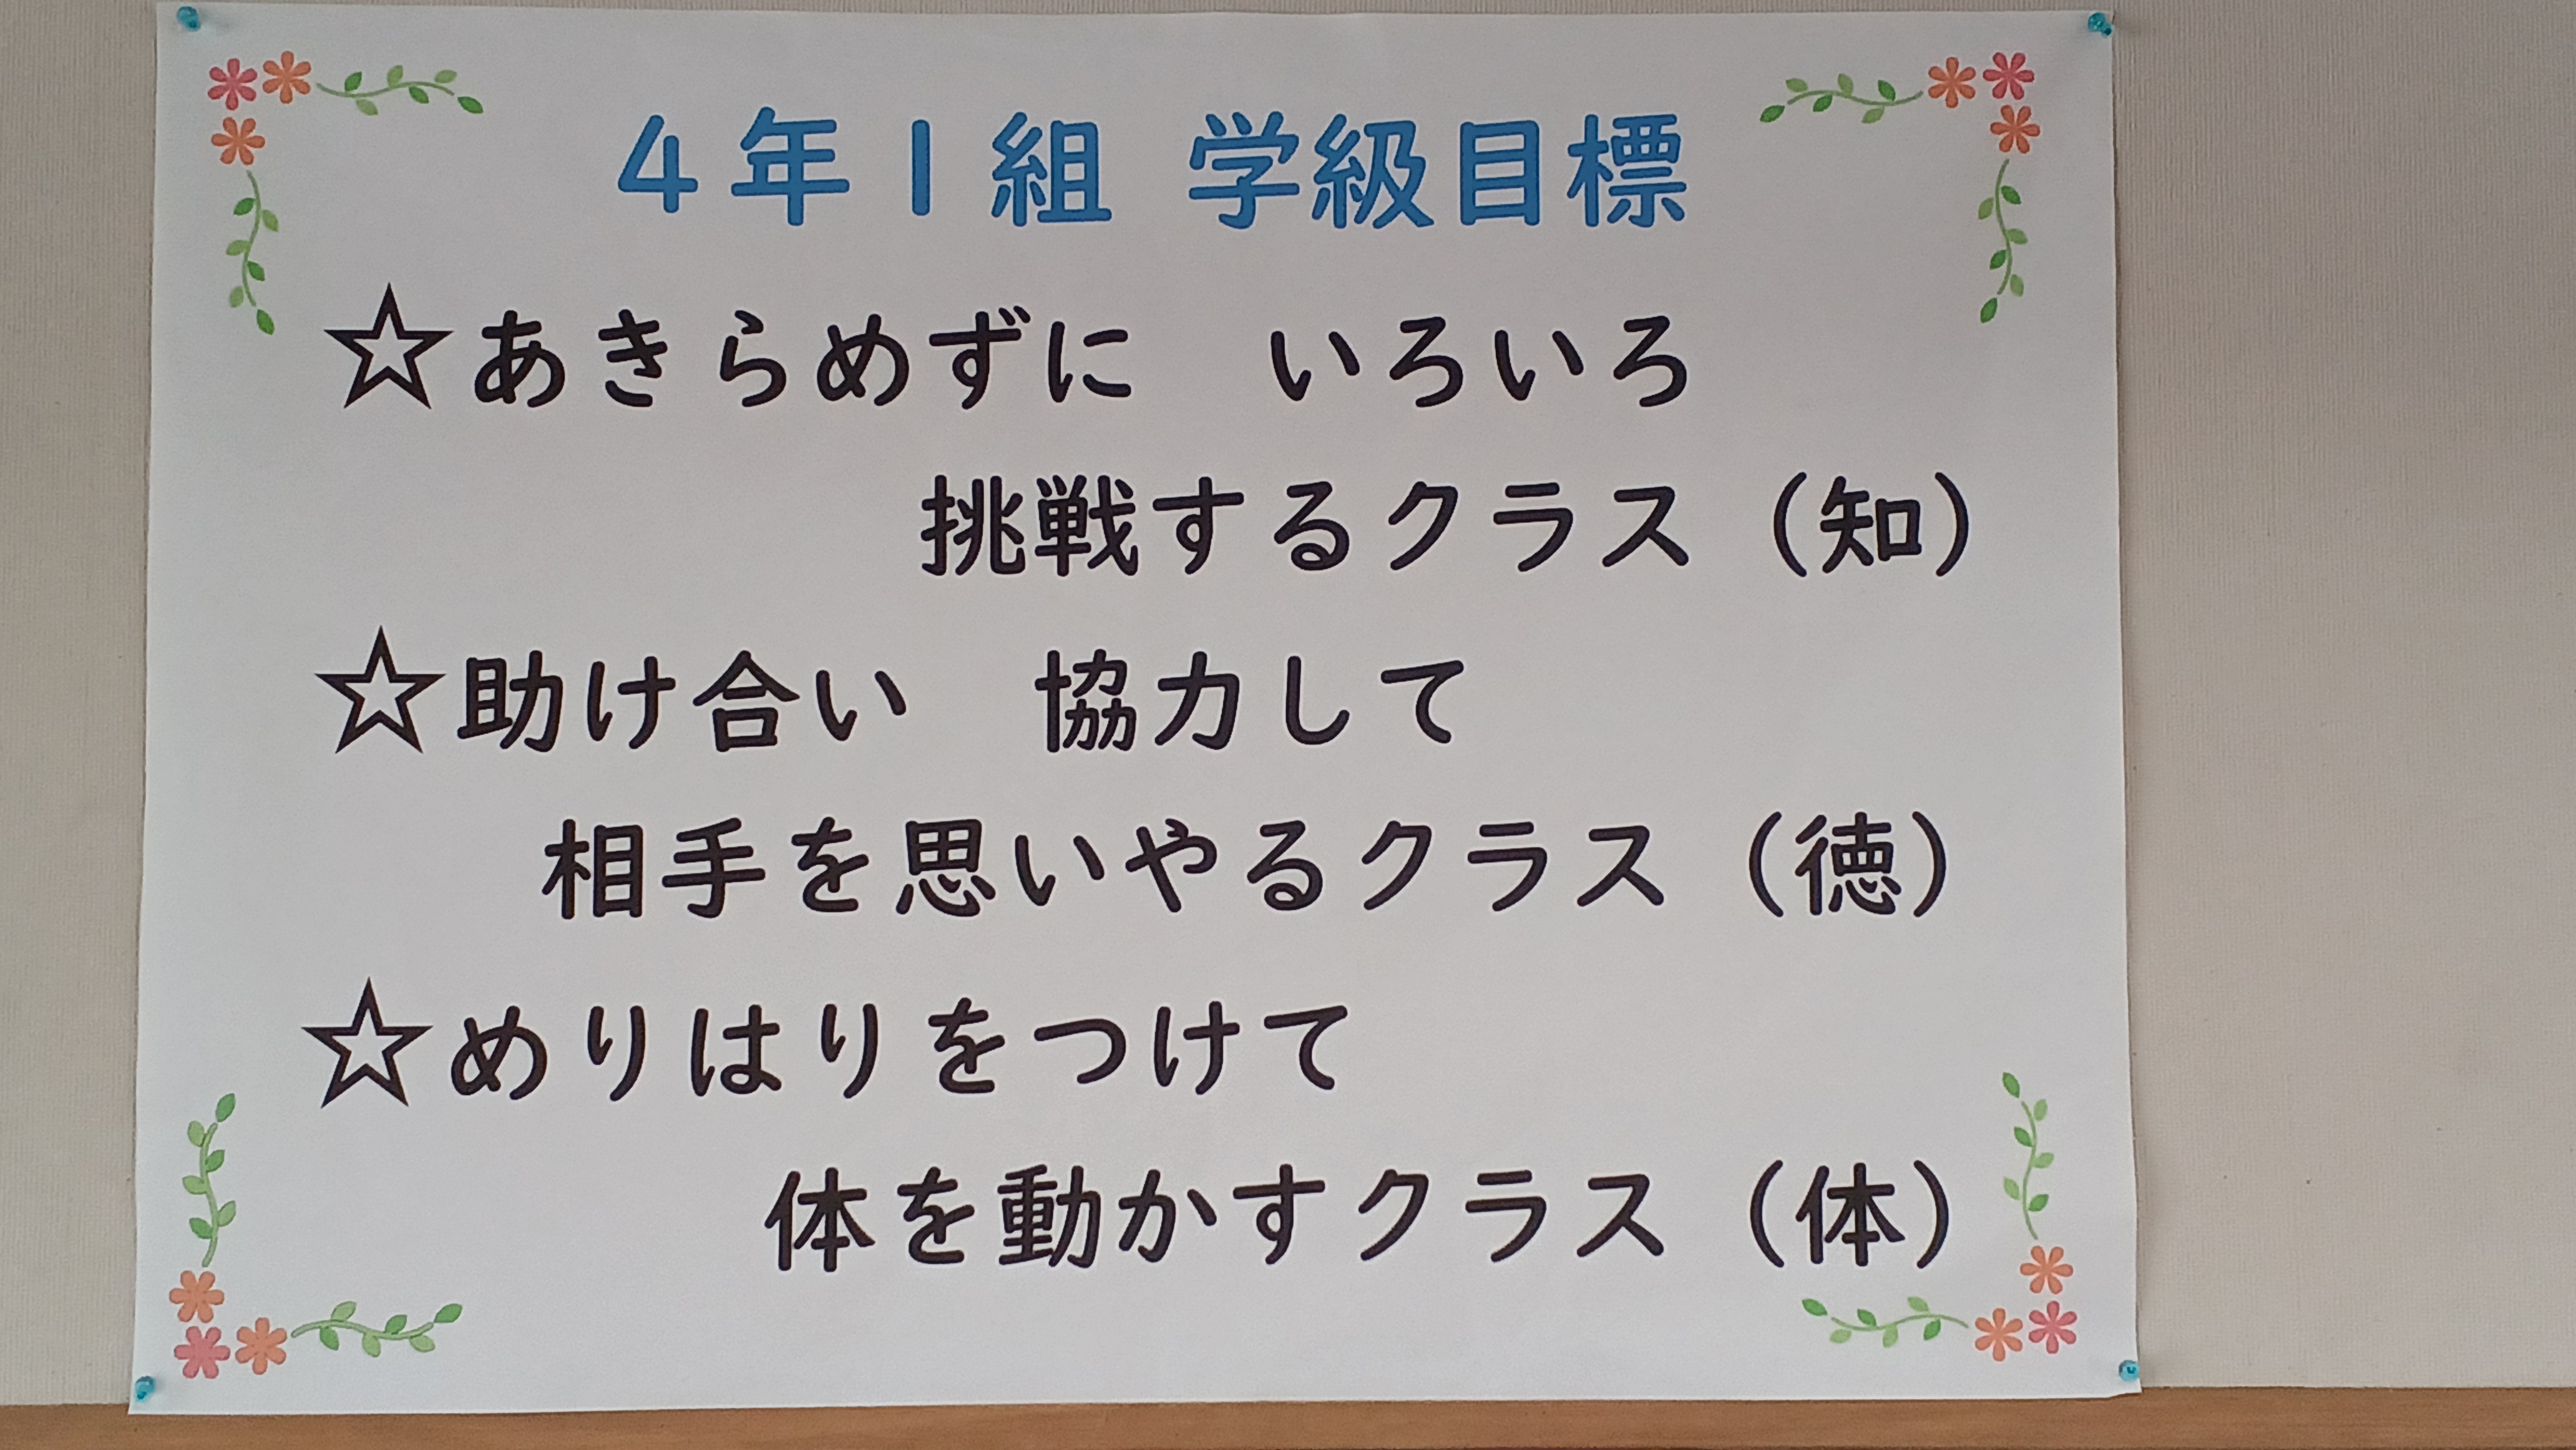 4年1組 学級目標
☆あきらめずに　いろいろ
挑戦するクラス（知）
☆助け合い　協力して
相手を思いやるクラス（徳）
☆めりはりをつけて
体を動かすクラス（体）